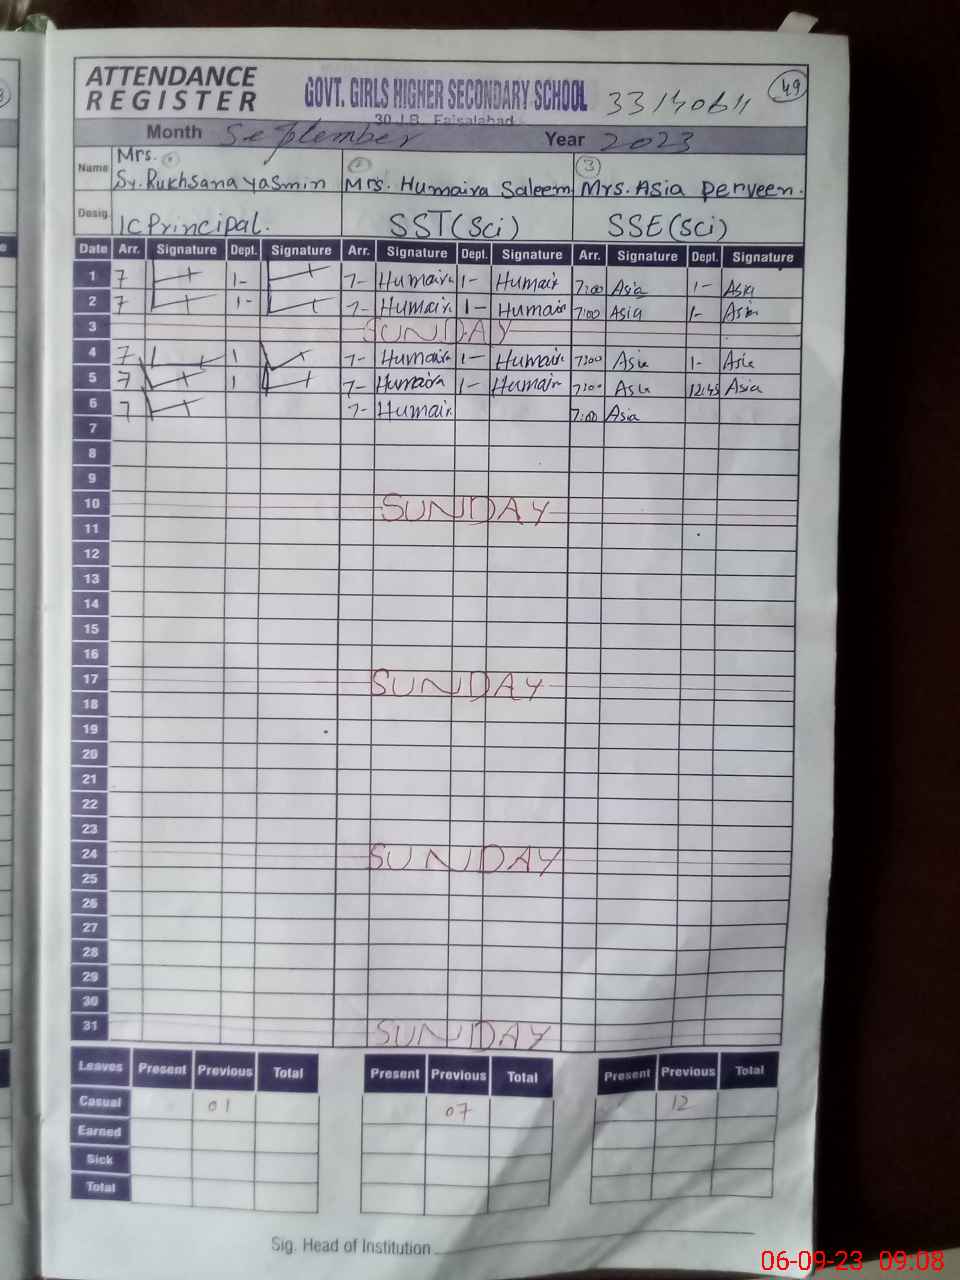 ATTENDANCE REGISTER
GOVT. GIRLS HIGHER SECONDARY SCHOOL
30 J.B. Faisalabad
33140611
49
Month September Year 2023
Name Mrs. 1 Sy. Rukhsana Yasmin 2 Mrs. Humaira Saleem 3 Mrs. Asia Perveen.
Desig. IC Principal. SST (Sci) SSE (Sci)
Date Arr. Signature Dept. Signature Arr. Signature Dept. Signature Arr. Signature Dept. Signature
1 7 1- 7- Humaira 1- Humair 7:00 Asia 1- Asia
2 7 1- 7- Humair 1- Humair 7:00 Asia 1- Asia
3 SUNDAY
4 7 1 7- Humair 1- Humair 7:00 Asia 1- Asia
5 7 1 7- Humaira 1- Humair 7:00 Asia 12:45 Asia
6 7 7- Humair 7:00 Asia
7
8
9
10 SUNDAY
11
12
13
14
15
16
17 SUNDAY
18
19
20
21
22
23
24 SUNDAY
25
26
27
28
29
30
31 SUNDAY
Leaves Present Previous Total Present Previous Total Present Previous Total
Casual 01 07 12
Earned
Sick
Total
Sig. Head of Institution
06-09-23 09:08